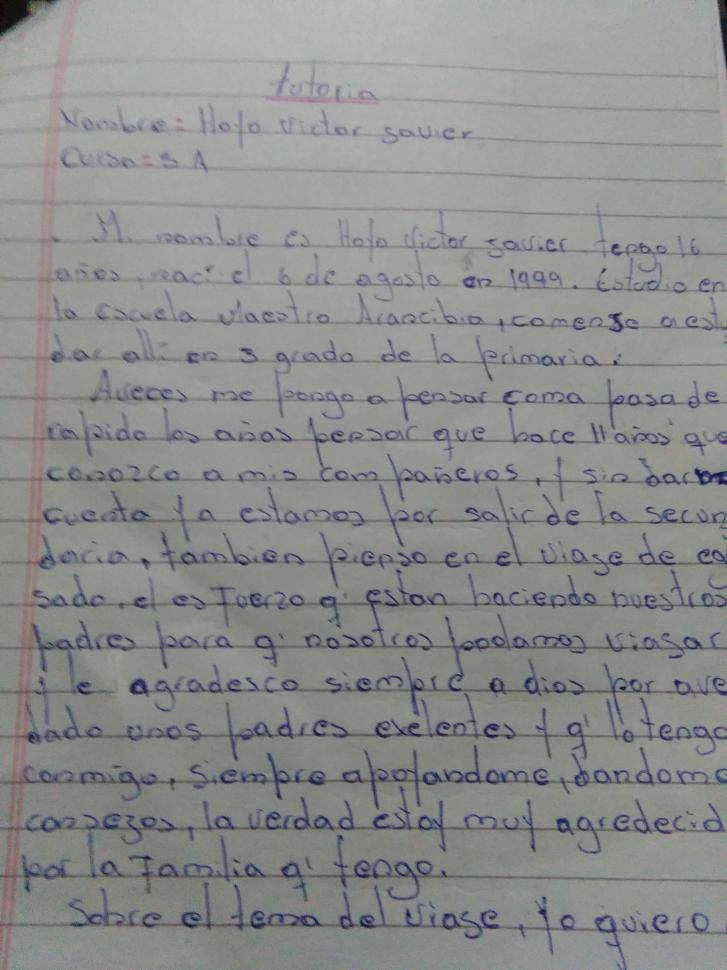 tutoria
Nombre = Hoyo Victor savier
Curso = 3 A
Mi nombre es Hoyo Victor savier tengo 16
años, naci el 6 de agosto en 1999. Estudio en
la escuela Maestro Arancibia, comense a estu
diar alli en 3 grado de la primaria.
Aveces me pongo a pensar como pasa de
rapido los años pensar que hace 11 años que
conozco a mis compañeros, y sin dar
cuenta ya estamos por salir de la secun
daria, tambien pienso en el viage de eg
sado, el esfuerzo q' estan haciendo nuestros
padres para q' nosotros podamos viagar
y le agradesco siempre a dios por ave
dado unos padres exelentes y q' lo tengo
conmigo, siempre apoyandome, dandome
consegos, la verdad estoy muy agredecid
por la familia q' tengo.
Sobre el tema del viage, yo quiero